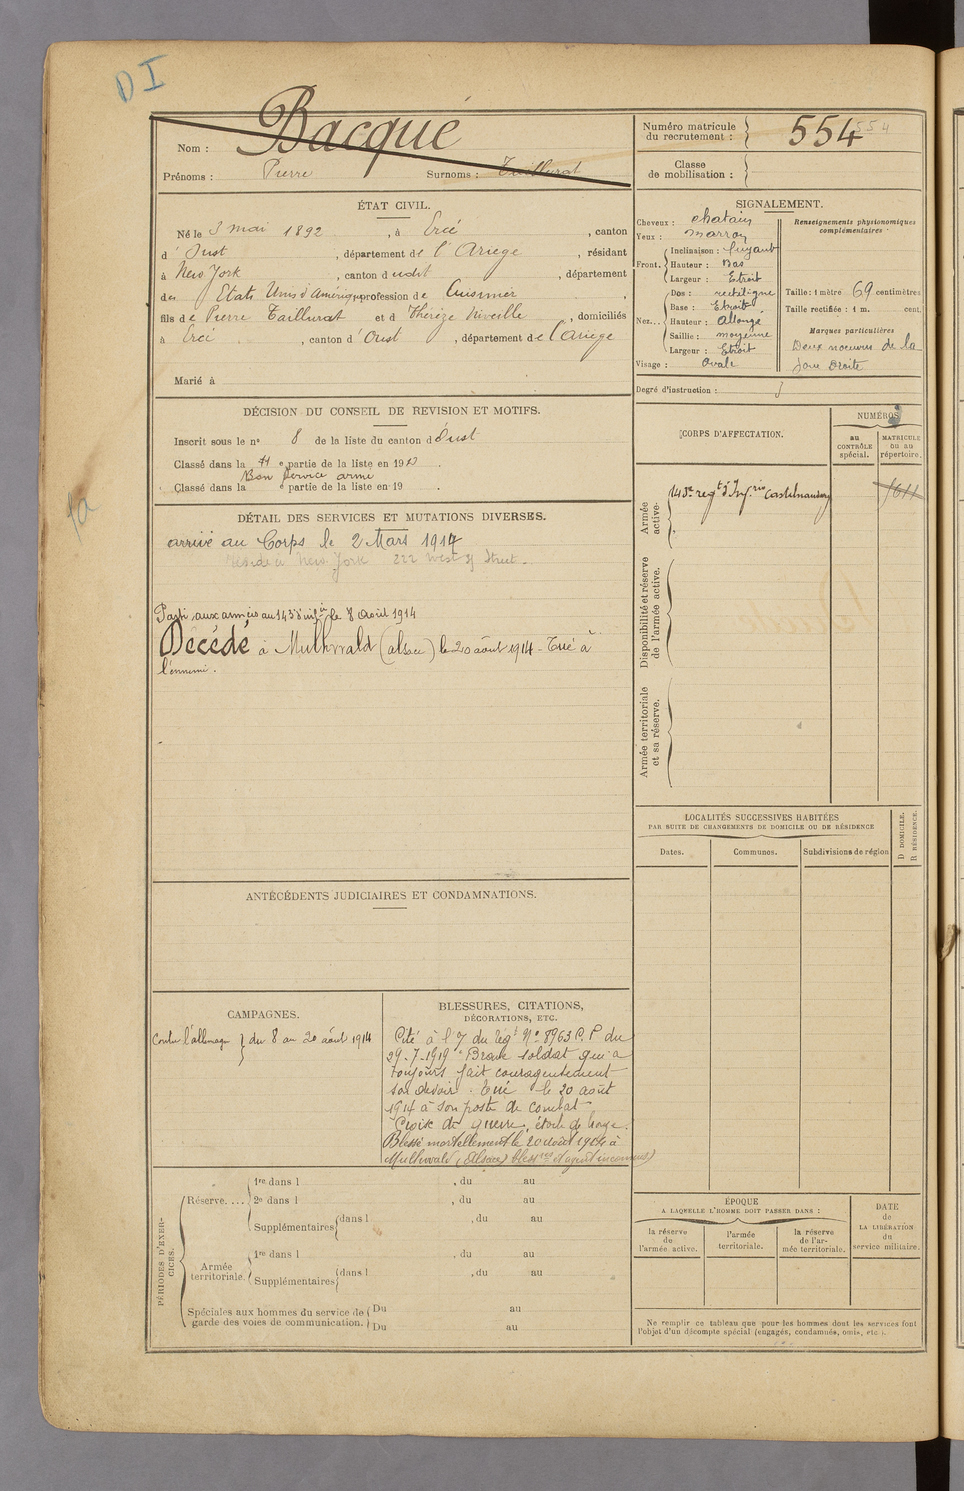 D I
Nom : Bacqué
Prénoms : Pierre Surnoms : Taillurat
Numéro matricule du recrutement : 554 554
Classe de mobilisation :
ÉTAT CIVIL.
Né le 3 mai 1892, à Ercé, canton
d'Oust, département de l'Ariège, résidant
à New York, canton d udit, département
des Etats Unis d'Amérique profession de Cuisinier,
fils de Pierre Taillurat et d Thérèze, domiciliés
à Ercé, canton d'Oust, département de l'Ariege
Marié à
SIGNALEMENT.
Cheveux : chatain
Yeux : marron
Front.
Inclinaison : fuyant
Hauteur : Bas
Largeur : Etroit
Nez...
Dos : rectiligne
Base : Etroite
Hauteur : allongé
Saillie : moyenne
Largeur : Etroit
Visage : ovale
Renseignements physionomiques complémentaires :
Taille : 1 mètre 69 centimètres
Taille rectifiée : 1 m. cent.
Marques particulières
Deux noeuvus de la
joue Droite
Degré d'instruction : 3
DÉCISION DU CONSEIL DE REVISION ET MOTIFS.
Inscrit sous le n° 8 de la liste du canton d'Oust
Classé dans la e partie de la liste en 191
Bon service armé
Classé dans la e partie de la liste en 19 .
CORPS D'AFFECTATION.
NUMÉROS
au CONTRÔLE spécial.
MATRICULE ou au répertoire.
Armée active.
143e regt d'Inf.rie Castelnaudary
1611
Disponibilité et réserve de l'armée active.
Armée territoriale et sa réserve.
DÉTAIL DES SERVICES ET MUTATIONS DIVERSES.
arrivé au Corps le 2 Mars 1914
réside à New-York 222 West Street.
Parti aux armées au 143e inf.ie le 8 Août 1914
Décédé à Mulhwald (alsace) le 20 août 1914 - Tué à
l'ennemi.
LOCALITÉS SUCCESSIVES HABITÉES
PAR SUITE DE CHANGEMENTS DE DOMICILE OU DE RÉSIDENCE
Dates.
Communes.
Subdivisions de région
D DOMICILE.
R RÉSIDENCE.
ANTÉCÉDENTS JUDICIAIRES ET CONDAMNATIONS.
CAMPAGNES.
Contre l'allemagne } du 8 au 20 août 1914
BLESSURES, CITATIONS,
DÉCORATIONS, ETC.
Cité à l'O/ du Régt N° 8963 C.P du
29-7-1919 "Brave soldat qui a
toujours fait courageusement
son devoir. Tué le 20 août
1914 à son poste de combat
Croix de guerre, étoile de bronze.
Blessé mortellement le 20 Août 1914 à
Mulhwald (Alsace) blesres et agent inconnus)
PÉRIODES D'EXERCICES.
Réserve....
1re dans l , du au
2e dans l , du au
Supplémentaires dans l , du au
Armée territoriale.
1re dans l , du au
Supplémentaires dans l , du au
Spéciales aux hommes du service de garde des voies de communication.
Du au
Du au
ÉPOQUE
A LAQUELLE L'HOMME DOIT PASSER DANS :
la réserve de l'armée active.
l'armée territoriale.
la réserve de l'armée territoriale.
DATE de LA LIBÉRATION du service militaire.
Ne remplir ce tableau que pour les hommes dont les services font
l'objet d'un décompte spécial (engagés, condamnés, omis, etc.).